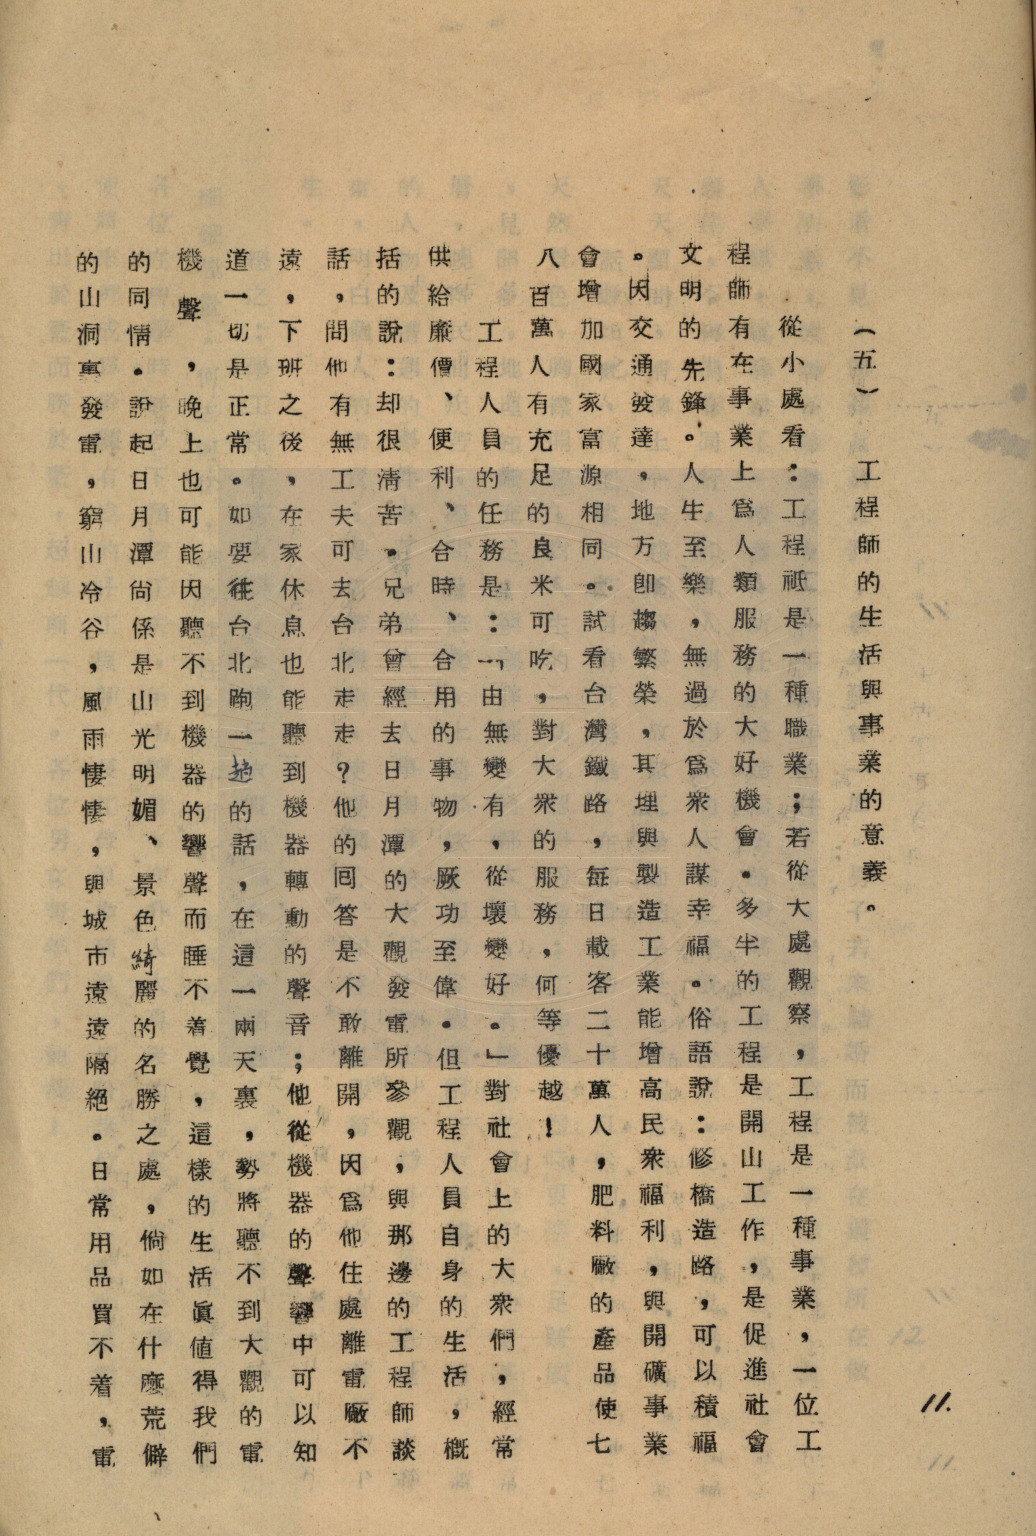 (五)　工程師的生活與事業的意義。
從小處看：工程祗是一種職業；若從大處觀察，工程是一種事業，一位工
程師有在事業上爲人類服務的大好機會。多半的工程是開山工作，是促進社會
文明的先鋒。人生至樂，無過於爲衆人謀幸福。俗語說：修橋造路，可以積福
。因交通發達，地方卽趨繁榮，其理與製造工業能增高民衆福利，與開礦事業
會增加國家富源相同。試看台灣鐵路，每日載客二十萬人，肥料廠的產品使七
八百萬人有充足的良米可吃，對大衆的服務，何等優越！
工程人員的任務是：「由無變有，從壞變好。」對社會上的大衆們，經常
供給廉價、便利、合時、合用的事物，厥功至偉。但工程人員自身的生活，槪
括的說：却很清苦。兄弟曾經去日月潭的大觀發電所參觀，與那邊的工程師談
話，問他有無工夫可去台北走走？他的回答是不敢離開，因爲他住處離電廠不
遠，下班之後，在家休息也能聽到機器轉動的聲音；他從機器的聲響中可以知
道一切是正常。如要往台北跑一趟的話，在這一兩天裏，勢將聽不到大觀的電
機聲，晚上也可能因聽不到機器的響聲而睡不着覺，這樣的生活眞値得我們
的同情。說起日月潭尙係是山光明媚、景色綺麗的名勝之處，倘如在什麼荒僻
的山洞裏發電，窮山冷谷，風雨悽悽，與城市遠遠隔絕。日常用品買不着，電
11.